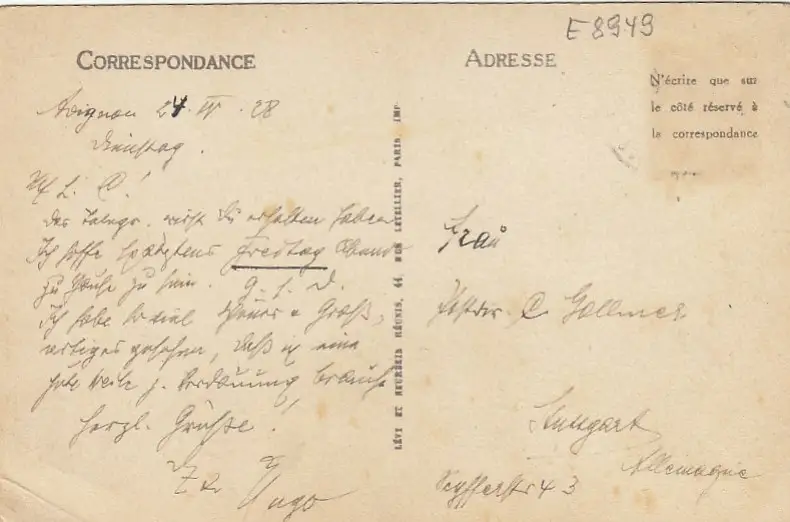 E 8949
CORRESPONDANCE
ADRESSE
N'écrire que sur
le côté réservé à
la correspondance
Avignon 24. IV. 28
Dienstag.
M. l. C!
Das Telegr. wirst Du erhalten haben
Ich hoffe spätestens Freitag Abend
zu Hause zu sein. G. s. D.
Ich habe so viel Schönes u Groß,
artiges gesehen, daß ich eine
gute Weile z. Verdauung brauche
herzl. Grüße!
Hugo
LÉVY ET NEURDEIN RÉUNIS, 44, RUE LETELLIER, PARIS IMP.
Frau
C. Gollmer
Stuttgart
Allemagne
Seyfferstr 43